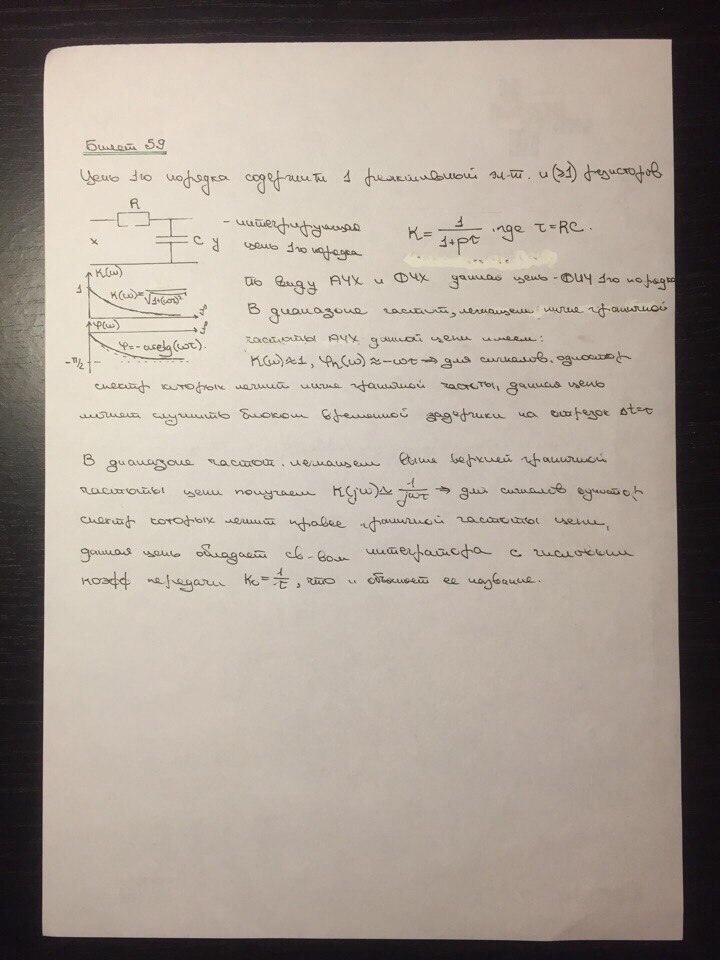 Билет 59
Цепь 1го порядка содержит 1 реактивный эл-т. и (≥1) резисторов
R
x
C y
- интегрирующая
цепь 1го порядка
K = 1/(1+pτ), где τ=RC.
K(ω)
1
K(ω)=1/√(1+(ωτ)²)
ω
φ(ω)
ω
φ=-arctg(ωτ).
-π/2
по виду АЧХ и ФЧХ данная цепь - ФНЧ 1го порядка
В диапазоне частот, лежащем ниже граничной
частоты АЧХ данной цепи имеем:
K(ω)≈1, φ(ω)≈-ωτ ⇒ для сигналов,
спектр которых лежит ниже граничной частоты, данная цепь
может служить блоком временной задержки на отрезок Δt=τ
В диапазоне частот, лежащем выше верхней граничной
частоты цепи получаем K(jω)≃1/(jωτ) ⇒ для сигналов
спектр которых лежит правее граничной частоты цепи,
данная цепь обладает св-вом интегратора с числовым
коэфф передачи K₀=1/τ, что и объясняет ее название.